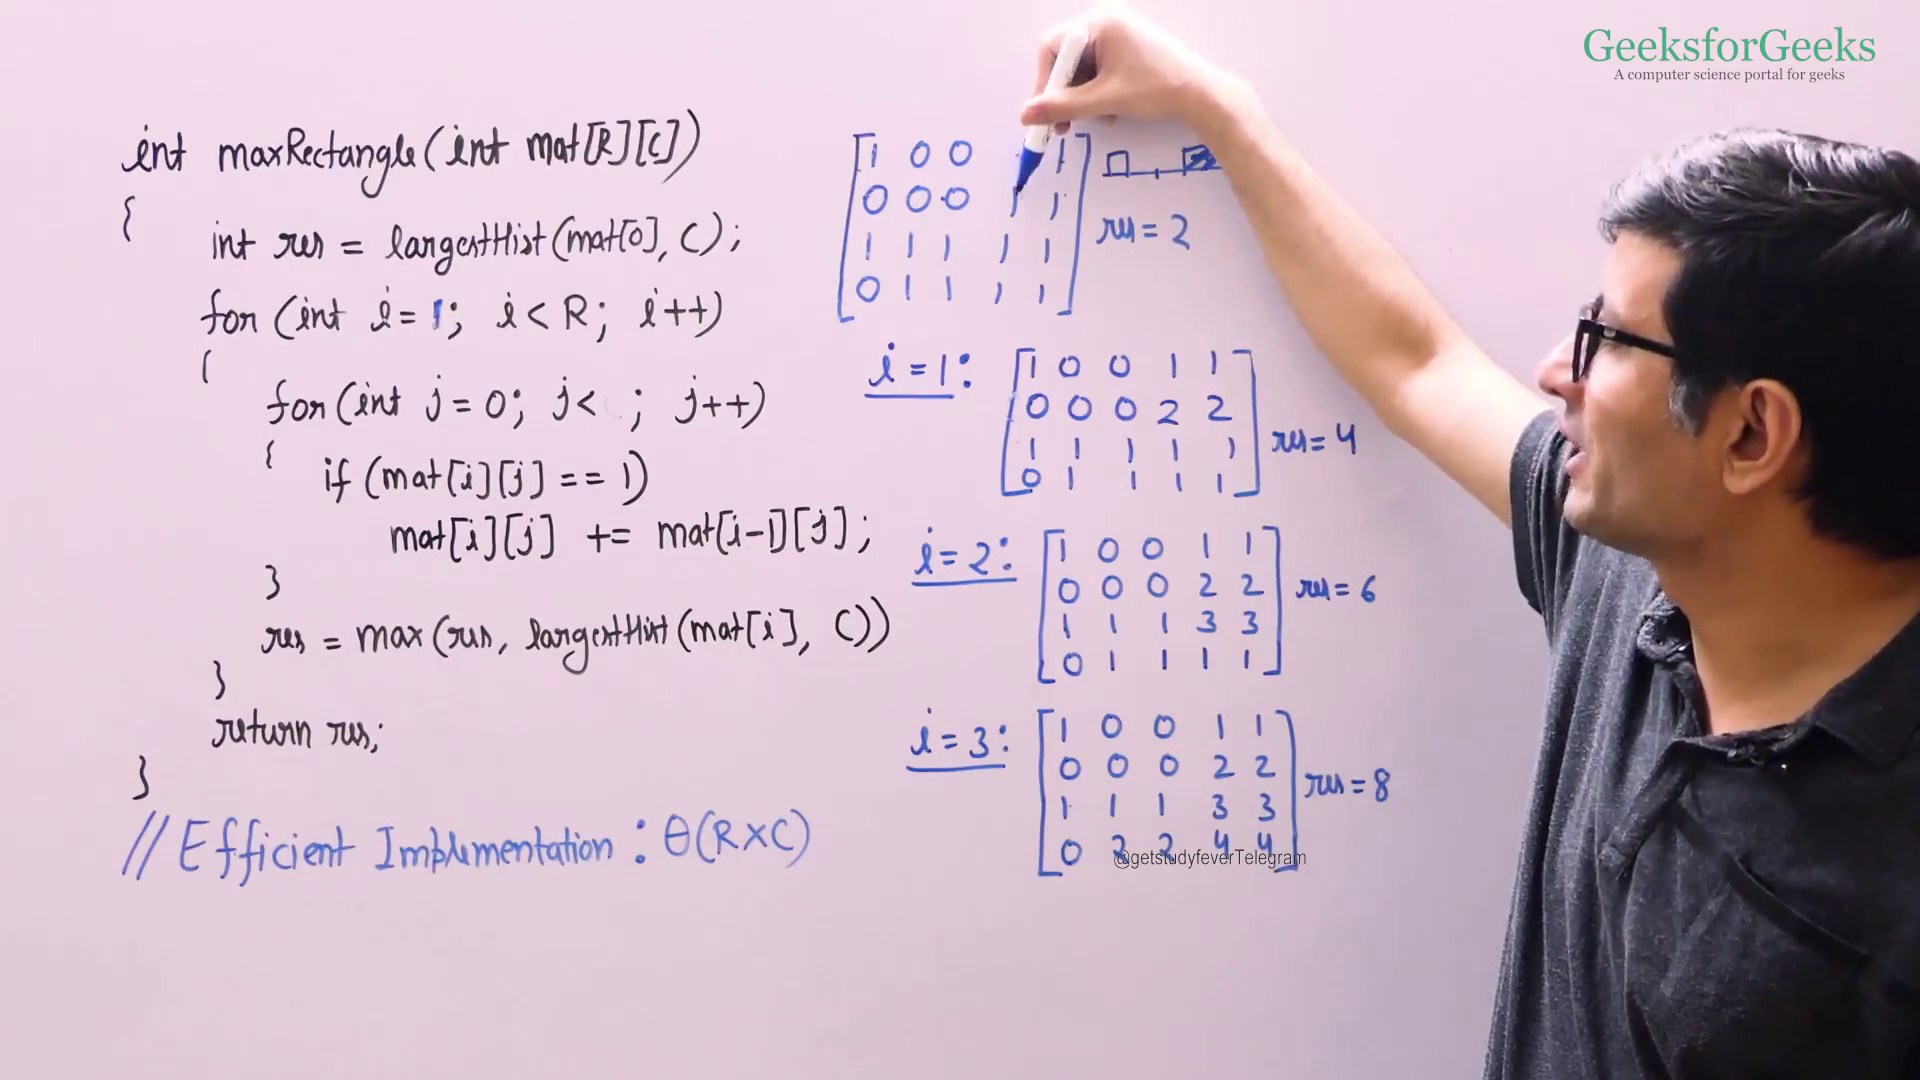 GeeksforGeeks
A computer science portal for geeks
int maxRectangle(int mat[R][C])
{
int res = largestHist(mat[0], C);
for (int i = 1; i < R; i++)
{
for (int j = 0; j < ; j++)
{
if (mat[i][j] == 1)
mat[i][j] += mat[i-1][j];
}
res = max(res, largestHist(mat[i], C))
}
return res;
}
// Efficient Implementation : θ(R×C)
1 0 0 1
0 0 0 1 1
1 1 1 1 1
0 1 1 1 1
res = 2
i = 1:
1 0 0 1 1
0 0 0 2 2
1 1 1 1 1
0 1 1 1 1
res = 4
i = 2:
1 0 0 1 1
0 0 0 2 2
1 1 1 3 3
0 1 1 1 1
res = 6
i = 3:
1 0 0 1 1
0 0 0 2 2
1 1 1 3 3
0 2 2 4 4
res = 8
@getstudyfeverTelegram